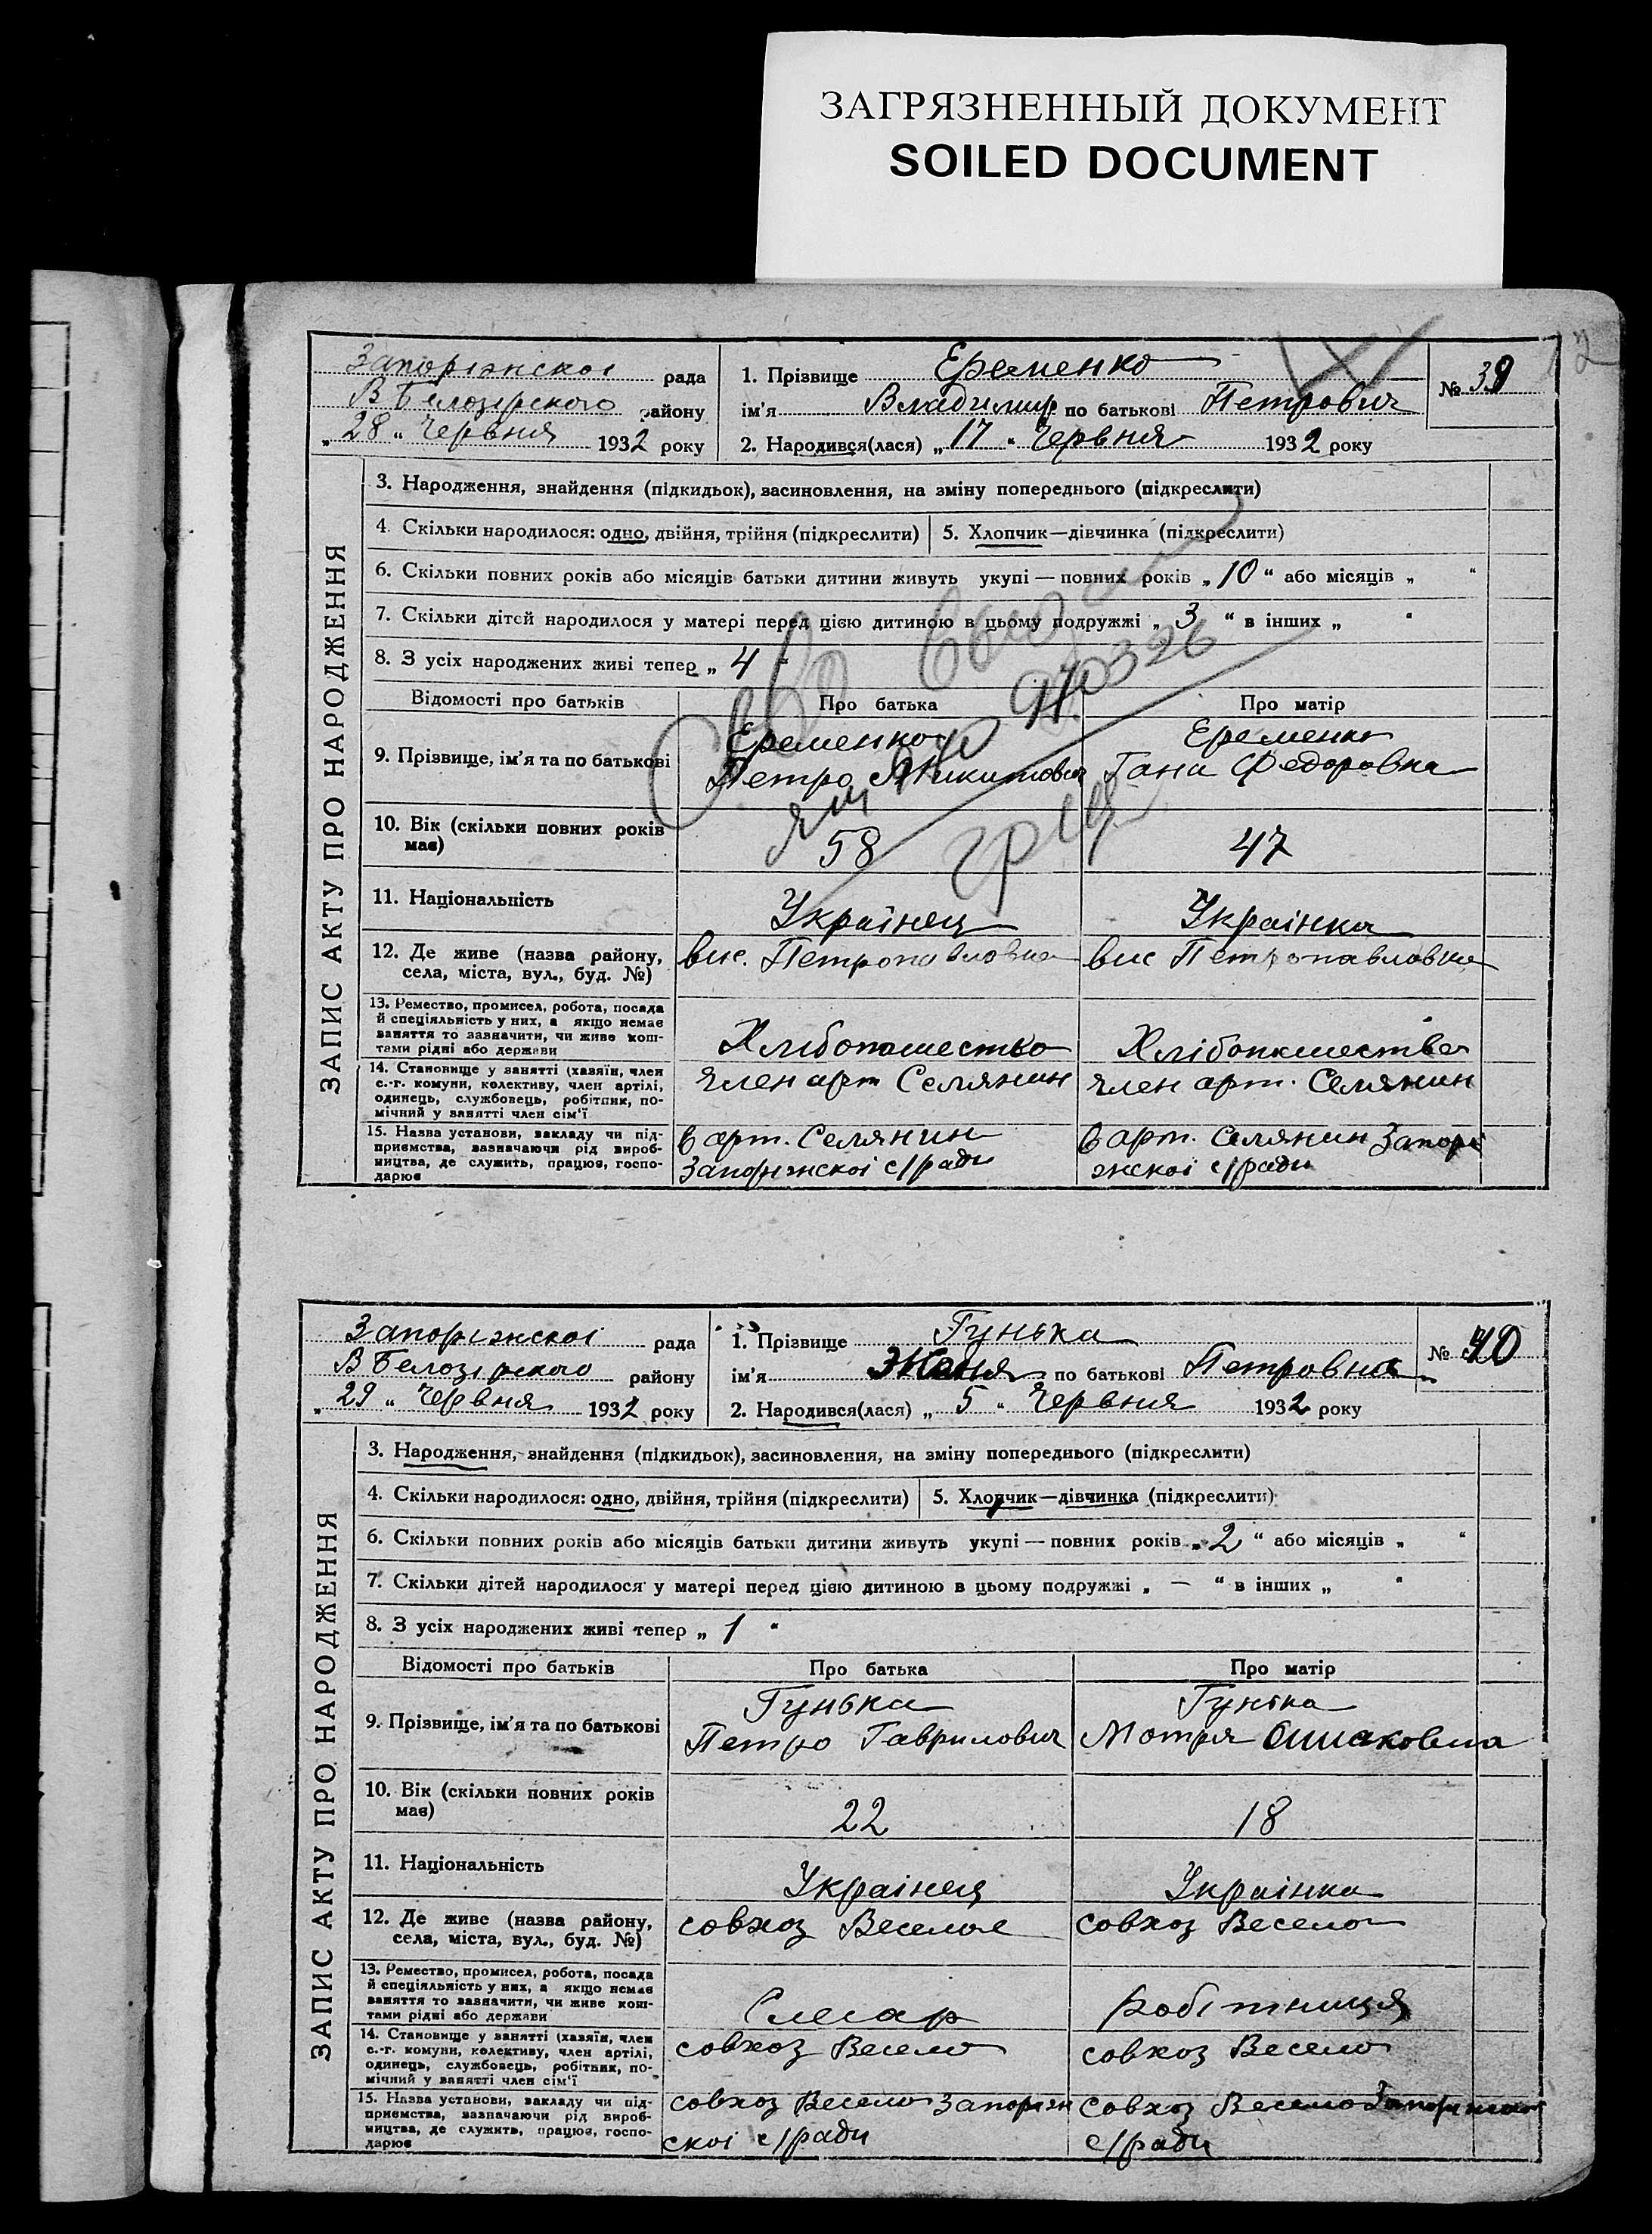 ЗАГРЯЗНЕННЫЙ ДОКУМЕНТ
SOILED DOCUMENT
12
Запоріжскоі рада
В Белозірского району
„ 28 “ Червня 1932 року
1. Прізвище Еременко
ім'я Владимир по батькові Петрович
2. Народився(лася) „ 17 “ Червня 1932 року
№ 39
ЗАПИС АКТУ ПРО НАРОДЖЕННЯ
3. Народження, знайдення (підкидьок), засиновлення, на зміну попереднього (підкреслити)
4. Скільки народилося: одно, двійня, трійня (підкреслити) 5. Хлопчик—дівчинка (підкреслити)
6. Скільки повних років або місяців батьки дитини живуть укупі — повних років „ 10 “ або місяців „ “
7. Скільки дітей народилося у матері перед цією дитиною в цьому подружжі „ 3 “ в інших „ “
8. З усіх народжених живі тепер „ 4 “
Відомості про батьків Про батька Про матір
9. Прізвище, ім'я та по батькові
Еременко
Петро Никитович
Еременко
Гана Федоровна
10. Вік (скільки повних років
має)
58
47
11. Національність
Українец
Украінка
12. Де живе (назва району,
села, міста, вул., буд. №)
вис. Петропавловка
вис Петропавловка
13. Ремество, промисел, робота, посада
й спеціяльність у них, а якщо немає
заняття то зазначити, чи живе кош-
тами рідні або держави
Хлібопашество
Хлібопашество
14. Становище у занятті (хазяїн, член
с.-г. комуни, колективу, член артілі,
одинець, службовець, робітник, по-
мічний у занятті член сім'ї
член арт Селянин
член арт. Селянин
15. Назва установи, закладу чи під-
приємства, зазначаючи рід вироб-
ництва, де служить, працює, госпо-
дарює
в арт. Селянин
Запоріжскоі с/ради
в арт. Селянин Запорі
жскоі с/ради
970326
Запоріжскоі рада
В Белозірского району
„ 29 “ Червня 1932 року
1. Прізвище Гунька
ім'я Женя по батькові Петровна
2. Народився(лася) „ 5 “ Червня 1932 року
№ 40
ЗАПИС АКТУ ПРО НАРОДЖЕННЯ
3. Народження, знайдення (підкидьок), засиновлення, на зміну попереднього (підкреслити)
4. Скільки народилося: одно, двійня, трійня (підкреслити) 5. Хлопчик—дівчинка (підкреслити)
6. Скільки повних років або місяців батьки дитини живуть укупі — повних років „ 2 “ або місяців „ “
7. Скільки дітей народилося у матері перед цією дитиною в цьому подружжі „ — “ в інших „ “
8. З усіх народжених живі тепер „ 1 “
Відомості про батьків Про батька Про матір
9. Прізвище, ім'я та по батькові
Гунька
Петро Гаврилович
Гунька
Мотря
10. Вік (скільки повних років
має)
22
18
11. Національність
Украінец
Украінка
12. Де живе (назва району,
села, міста, вул., буд. №)
совхоз Веселое
совхоз Весело
13. Ремество, промисел, робота, посада
й спеціяльність у них, а якщо немає
заняття то зазначити, чи живе кош-
тами рідні або держави
Слесар
Робітниця
14. Становище у занятті (хазяїн, член
с.-г. комуни, колективу, член артілі,
одинець, службовець, робітник, по-
мічний у занятті член сім'ї
совхоз Весело
совхоз Весело
15. Назва установи, закладу чи під-
приємства, зазначаючи рід вироб-
ництва, де служить, працює, госпо-
дарює
совхоз Весело Запоріж
скоі с/ради
совхоз Весело Запоріжскоі
с/ради